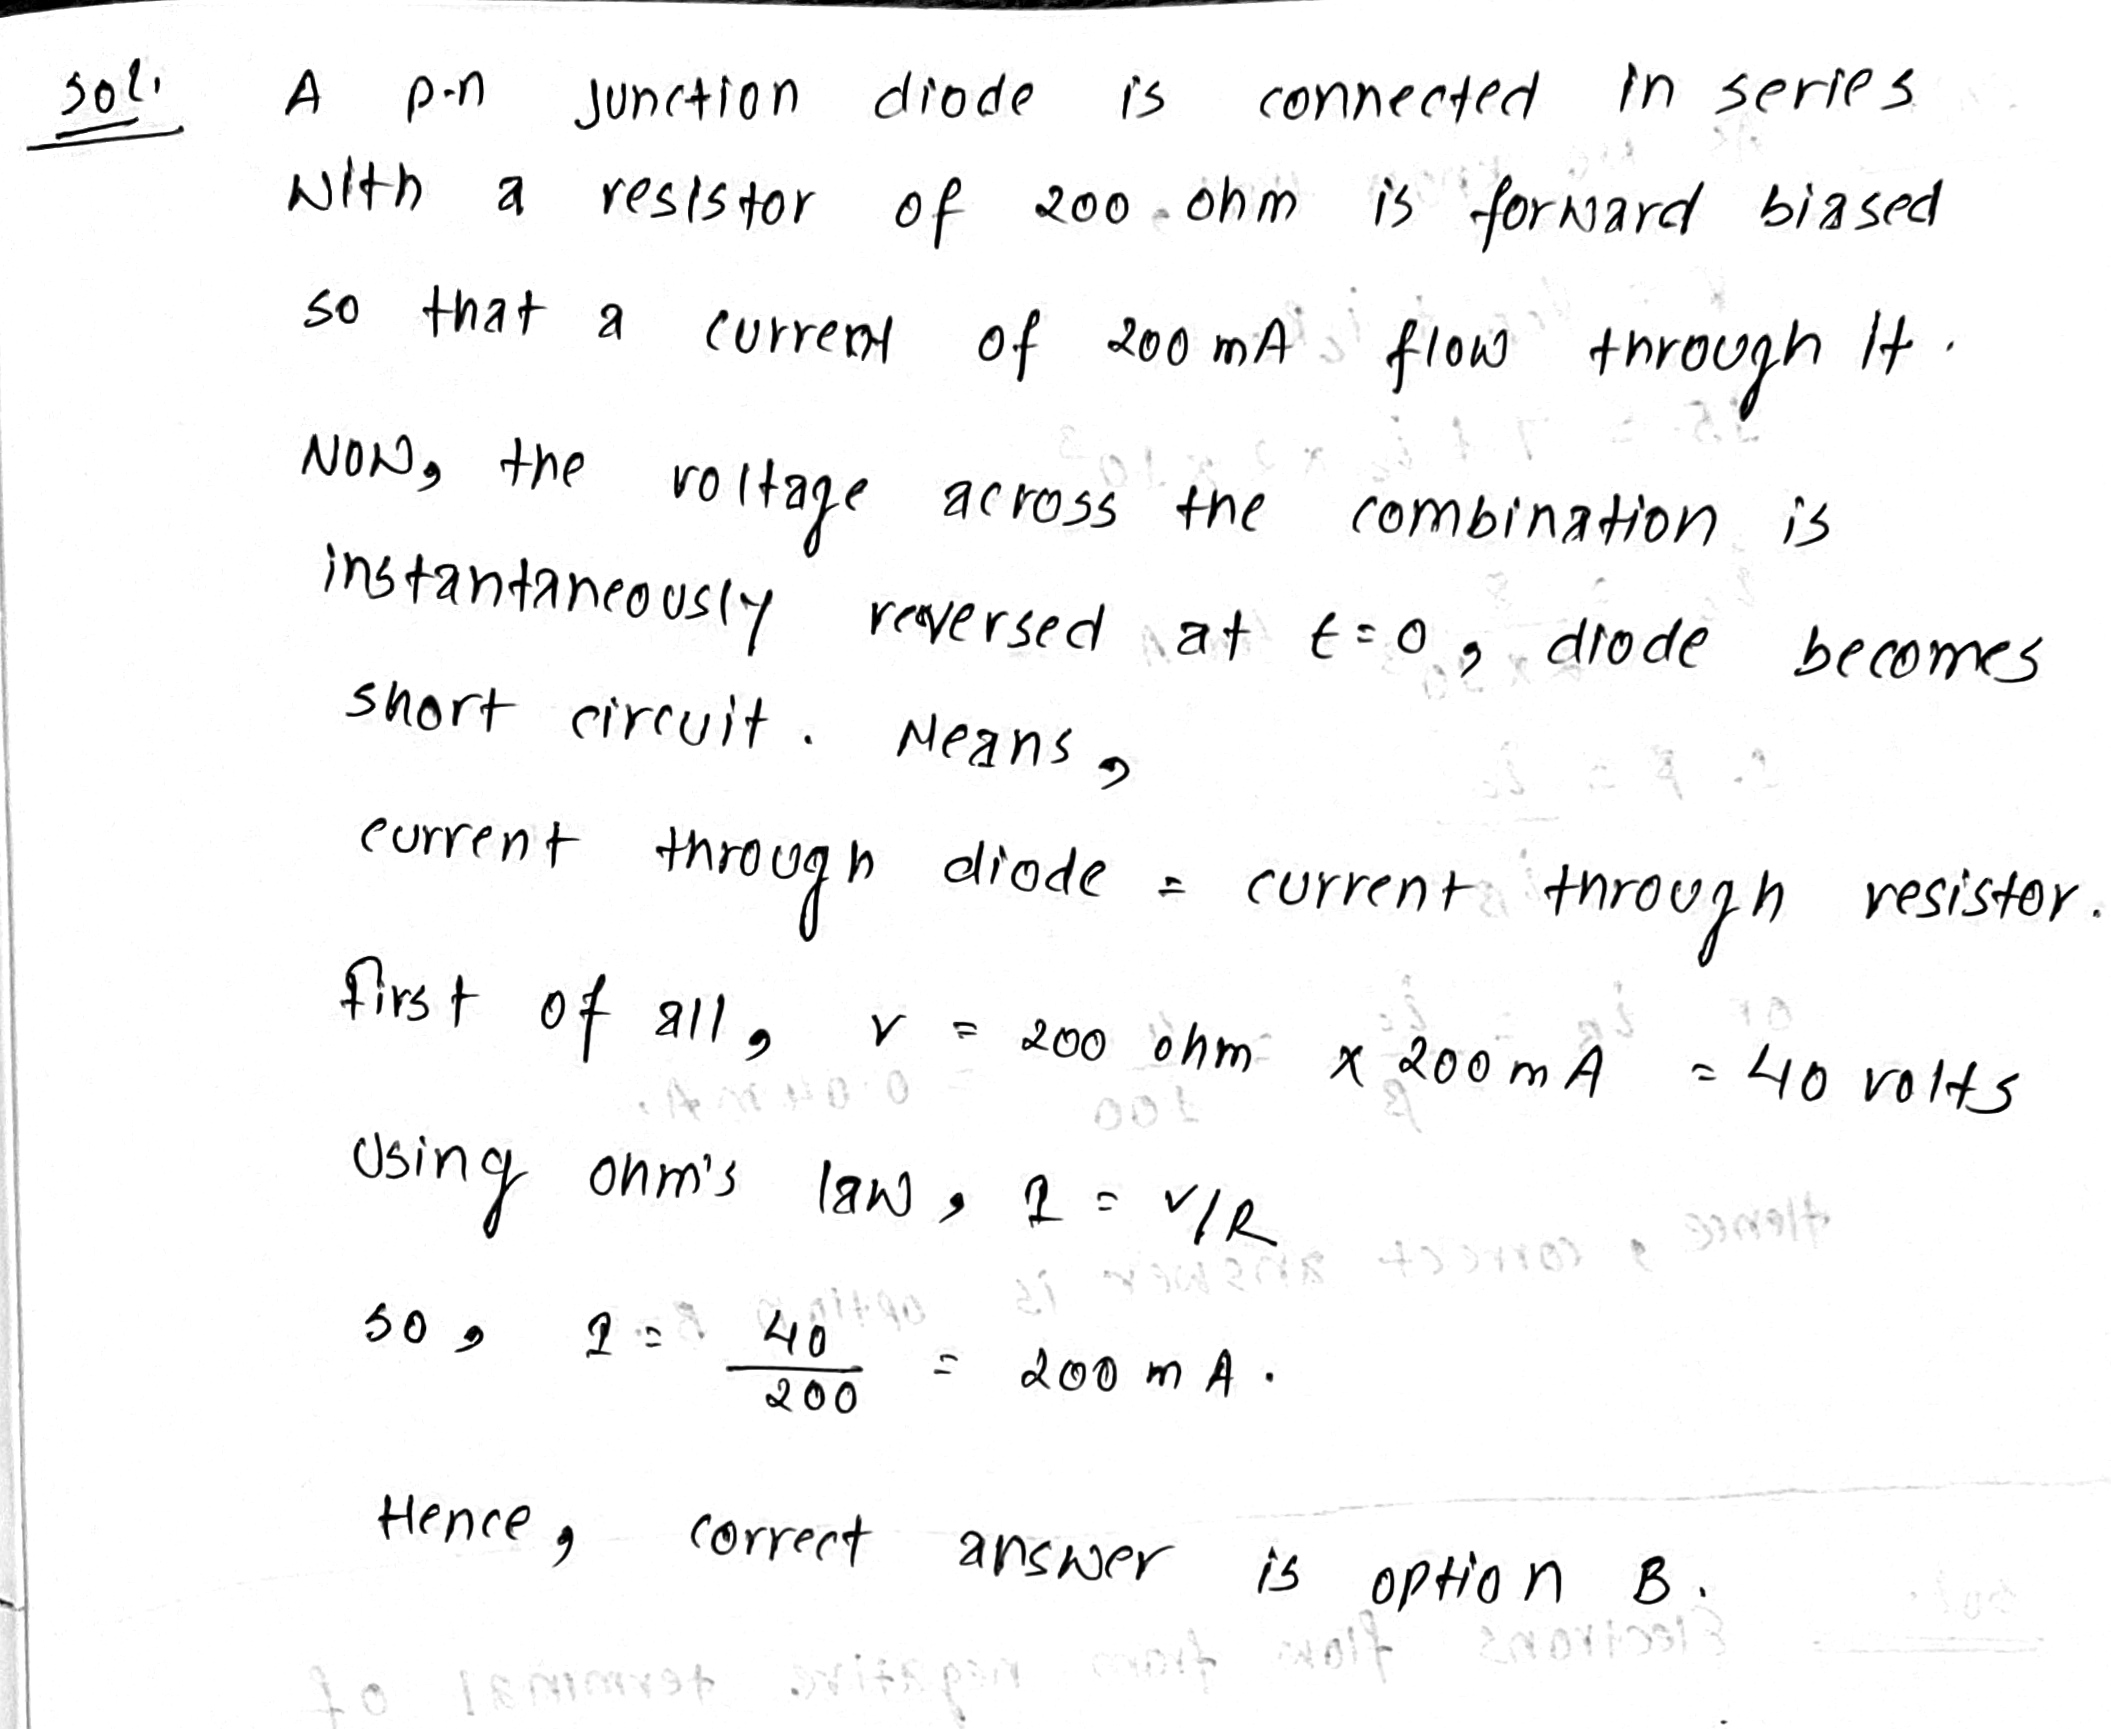 Sol.
A p-n junction diode is connected in series
with a resistor of 200 ohm is forward biased
so that a current of 200 mA flow through It.
Now, the voltage across the combination is
instantaneously reversed at t=0, diode becomes
short circuit. Means,
current through diode = current through resistor.
first of all, V = 200 ohm x 200 mA = 40 volts
Using ohm's law, I = V/R
so, I = 40/200 = 200 mA.
Hence, correct answer is option B.